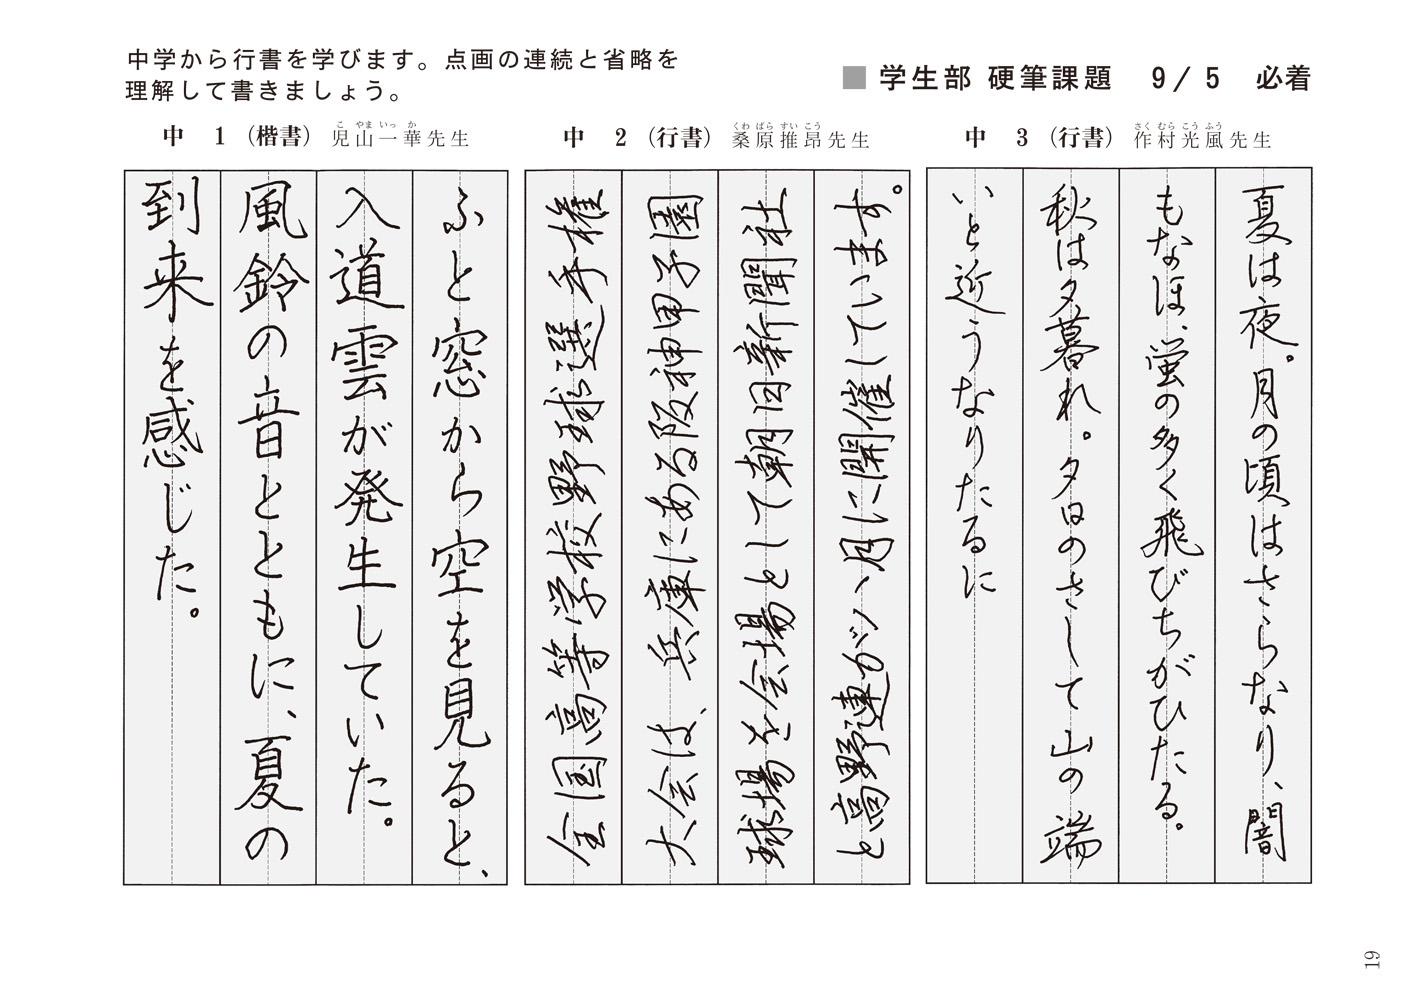 中学から行書を学びます。点画の連続と省略を
理解して書きましょう。
■ 学生部 硬筆課題 9/5 必着
中 1 (楷書) 児山一華先生
こ やま いっ か
ふと窓から空を見ると、
入道雲が発生していた。
風鈴の音とともに、夏の
到来を感じた。
中 2 (行書) 桑原推昂先生
くわ ばら すい こう
全国高等学校野球選手権
大会は、兵庫にある阪神甲子園
球場を会場として朝日新聞社
と高野連が八月に開催しています。
中 3 (行書) 作村光風先生
さく むら こう ふう
夏は夜。月の頃はさらなり、闇
もなほ、蛍の多く飛びちがひたる。
秋は夕暮れ。夕日のさして山の端
いと近うなりたるに
19